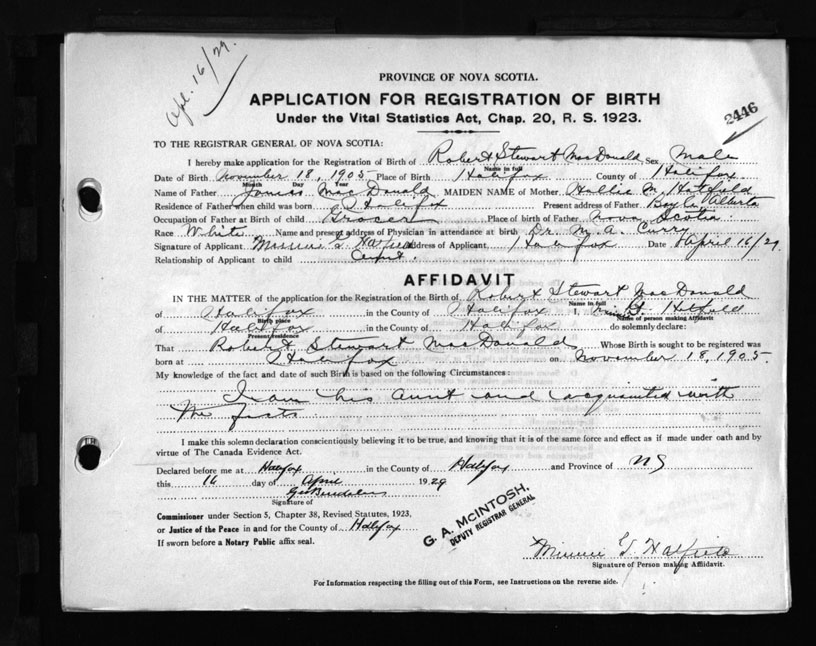 Apl. 16/29.
PROVINCE OF NOVA SCOTIA.
APPLICATION FOR REGISTRATION OF BIRTH
Under the Vital Statistics Act, Chap. 20, R. S. 1923.
2446
TO THE REGISTRAR GENERAL OF NOVA SCOTIA:
I hereby make application for the Registration of Birth of Robert Stewart MacDonald Sex Male
Name in full
Date of Birth November 18, 1905 Place of Birth Halifax County of Halifax
Month Day Year
Name of Father James MacDonald MAIDEN NAME of Mother M. Hatfield
Residence of Father when child was born Halifax Present address of Father Boyle Alberta
Occupation of Father at Birth of child Grocer Place of birth of Father Nova Scotia
Race White Name and present address of Physician in attendance at birth Dr. M. A. Curry
Signature of Applicant Minnie G. Hatfield Address of Applicant Halifax Date April 16/29.
Relationship of Applicant to child Aunt.
AFFIDAVIT
IN THE MATTER of the application for the Registration of the Birth of Robert Stewart MacDonald
Name in full
of Halifax in the County of Halifax G. Hatfield
Birth place Name of person making Affidavit
of Halifax in the County of Halifax do solemnly declare:
Present residence
That Robert Stewart MacDonald Whose Birth is sought to be registered was
born at Halifax on November 18, 1905.
My knowledge of the fact and date of such Birth is based on the following Circumstances:
I am his aunt and acquainted with
the facts
I make this solemn declaration conscientiously believing it to be true, and knowing that it is of the same force and effect as if made under oath and by
virtue of The Canada Evidence Act.
Declared before me at Halifax in the County of Halifax and Province of NS
this 16 day of April 1929
Signature of
Commissioner under Section 5, Chapter 38, Revised Statutes, 1923.
or Justice of the Peace in and for the County of Halifax
If sworn before a Notary Public affix seal.
G. A. McINTOSH,
DEPUTY REGISTRAR GENERAL
Minnie G. Hatfield
Signature of Person making Affidavit.
For Information respecting the filling out of this Form, see Instructions on the reverse side.